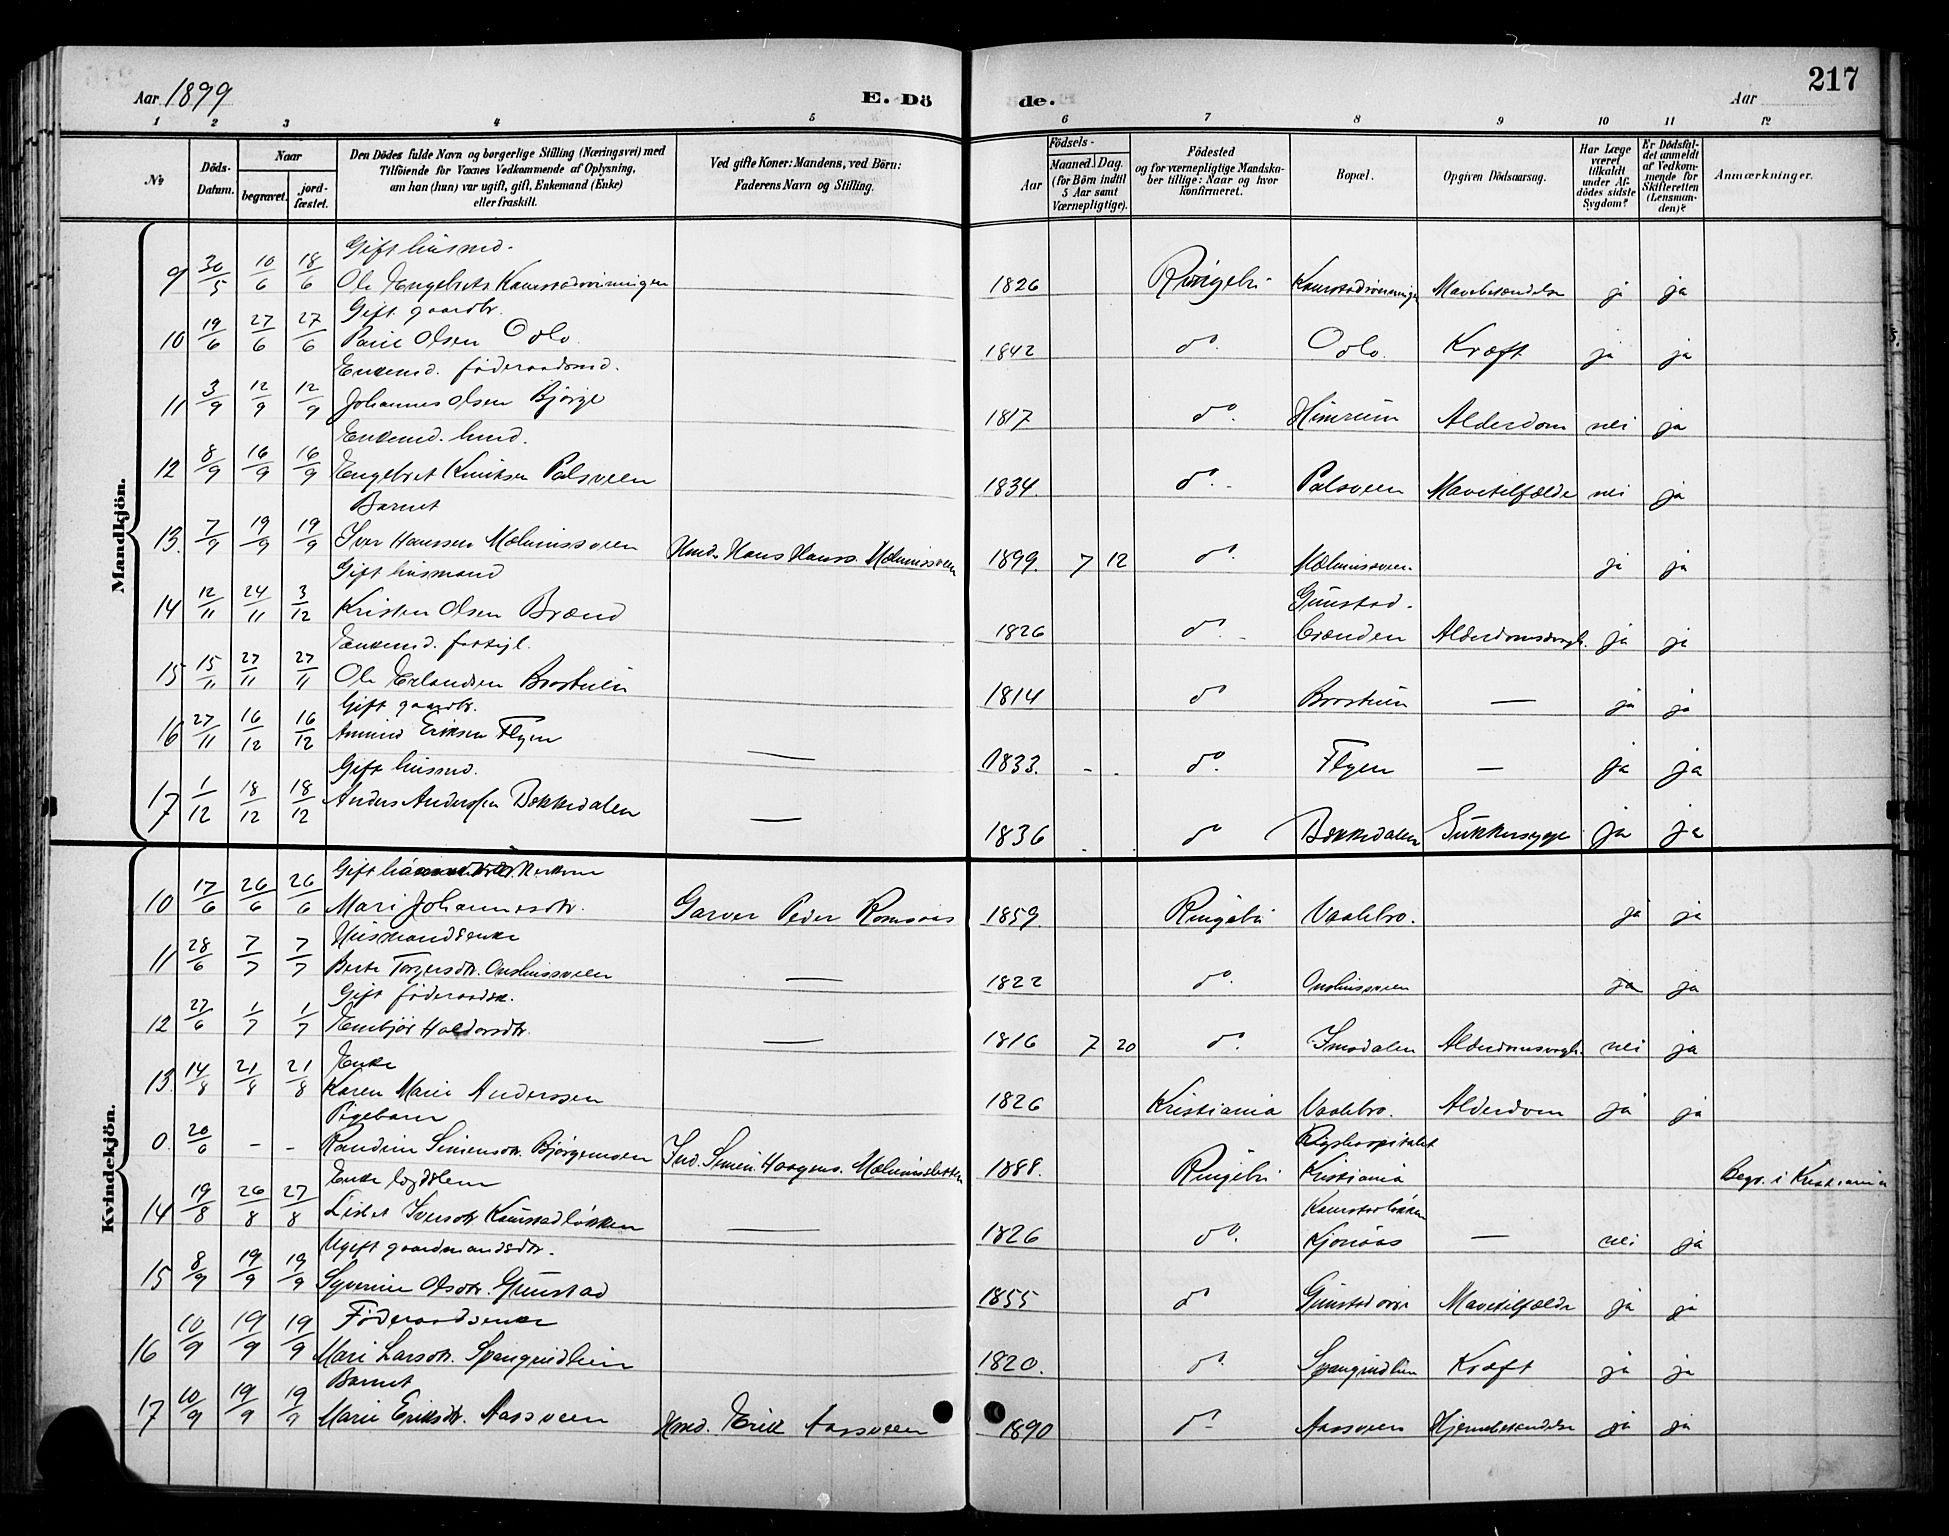 Aar 1899
E. Dö
de.
217
Aar
1 2 3 4 5 6 7 8 9 10 11 12
No
Döds-Datum.
Naar
begravet.
jord-fæstet.
Den Dödes fulde Navn og borgerlige Stilling (Næringsvei) med
Tilföiende for Voxnes Vedkommende af Oplysning,
om han (hun) var ugift, gift, Enkemand (Enke)
eller fraskilt.
Ved gifte Koner: Mandens, ved Börn:
Faderens Navn og Stilling.
Födsels-
Aar
Maaned. Dag.
(for Börn indtil
5 Aar samt
Værnepligtige).
Födested
og for værnepligtige Mandska-
ber tillige: Naar og hvor
konfirmeret.
Bopæl.
Opgiven Dödsaarsag.
Har Læge
været
tilkaldt
under Af-
dödes sidste
Sygdom?
Er Dödsfal-
det anmeldt
af Vedkom-
mende for
Skifteretten
(Lensman-
den)?
Anmærkninger.
Mandkjön.
Gift husmd.
9 30/5 10/6 18/6 Ole Engebrets Kamstadvimingen 1826 Ringebu Mavebetændelse ja ja
Gift gaardbr.
10 19/6 27/6 27/6 Paul Olsen Odlo. 1842 do. Odlo. Kræft ja ja
Enkemd. föderaadsmd.
11 3/9 12/9 12/9 Johannes Olsen Bjørge 1817 do. Himrum Alderdom nei ja
Enkemd. husmd.
12 8/9 16/9 16/9 Engebret Knutsen Palsveen 1834. do. Palsveen Mavetilfælde nei ja
Barnet
13. 7/9 19/9 19/9 Iver Hanssen Mælumssveen Hmd. Hans Hanss. Mælumssveen 1899. 7 12 do. Mælumssveen. ja ja
Gift husmand
14 12/11 24/11 3/12 Kristen Olsen Brænd 1826 do. Gunstad-brænden ja ja
Enkemd.
15 15/11 27/11 27/11 Ole Erlandsen 1814 do — ja ja
Gift gaardbr.
16 27/11 16/12 16/12 Amund Eriksen Flyen — 1833. do. Flyen — ja ja
Gift husmd.
17 1/12 18/12 18/12 Anders Anderssen Bækkedalen — 1836 do Bækkedalen Sukkersyge ja ja
Kvindekjön.
Gift
10 17/6 26/6 26/6 Mari Johannesdtr. Garver Peder Romsaas 1859. Ringebu Vaalebro. ja ja
Husmandsenke
11 28/6 7/7 7/7 Berte Torgersdtr. — 1822 do. ja ja
Gift föderaadsk.
12 27/6 1/7 1/7 Embjør Haldorsdtr. — 1816 7 20 do. Imsdalen nei ja
Enke
13. 14/8 21/8 21/8 Karen Marie Anderssen 1826 Kristiania Vaalebro. Alderdom ja ja
Pigebarn
0. 20/6 - - Randine Simensdtr. Bjørgemoen Ind. Simen Haagens. Mælumsletten 1888. Ringebu Rigshospitalet Kristiania Begr. i Kristiania
Enke
14 19/8 26/8 27/8 Lisbet Iversdtr. Kamstadløkken — 1826 do. Kamstadløkken Kjønaas — nei ja
Ugift gaardmandsdtr.
15 8/9 19/9 19/9 Syverine Olsdtr. Gunstad 1855 do Mavetilfælde ja ja
Föderaadsenke
16 10/9 19/9 19/9 Mari Larsdtr. Spangrudlien 1820. do. Spangrudlien Kræft ja ja
Barnet
17 10/9 19/9 19/9 Marie Eriksdtr. Aassveen Hmd. Erik Aassveen 1890 do. Aassveen Hjernebetændelse ja ja